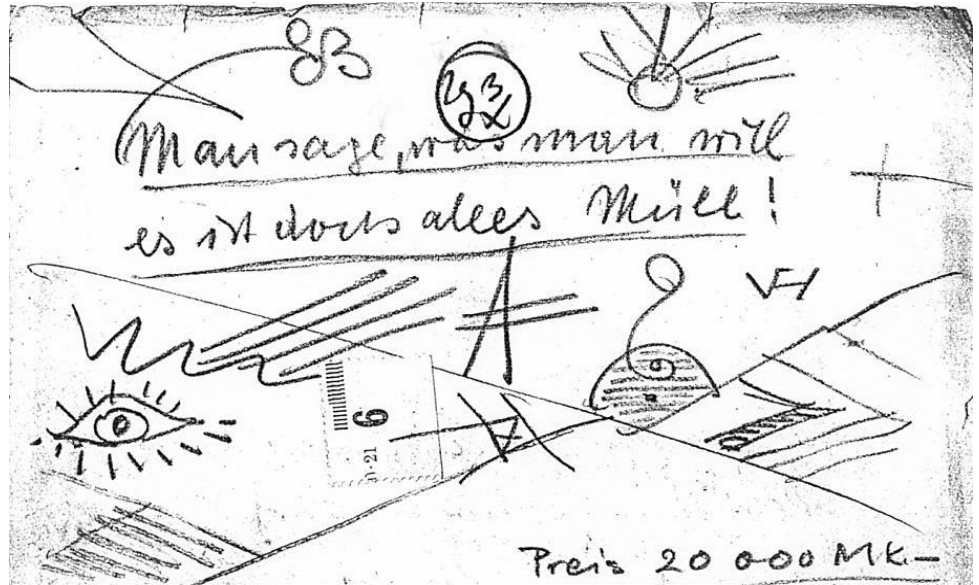 Man sage, was man will
es ist doch alles Müll!
6
Preis 20 000 Mk.–